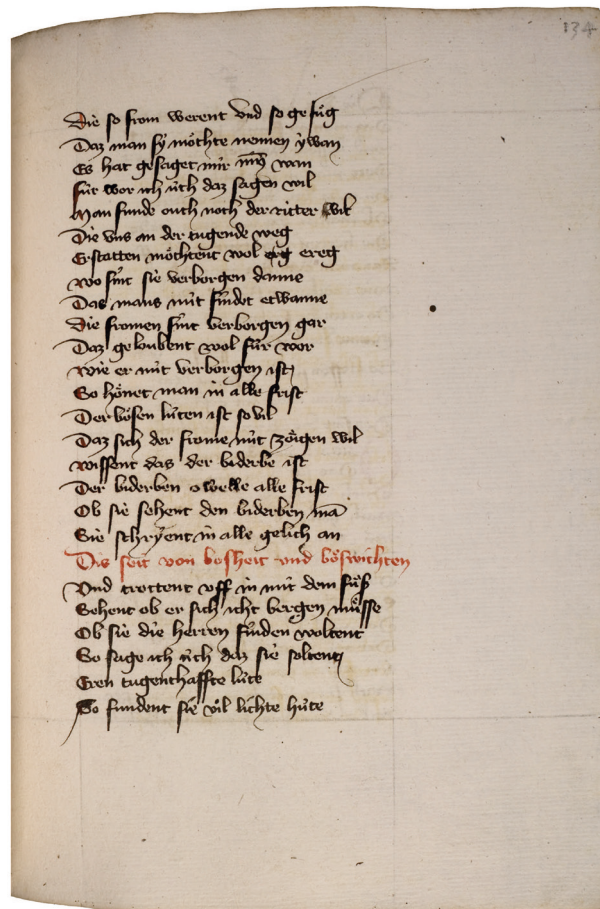 134
Die so from werent vnd so gefüg
Daz man sy möchte nemen ywan
Es hat gesaget mir min wan
für wor ich üch daz sagen wil
Man funde ouch noch der ritter vil
Die vns an der tugende weg
Erstatten möchtent wol erg ereg
wo sint sie verborgen danne
Das mans nüt findet etwanne
Die fromen sint verborgen gar
Daz geloubent wol für wor
wie er nüt verborgen ist
So hönet man in alle frist
Der bösen lüten ist so vil
Daz sich der frome nüt zöigen wil
wissent das der biderbe ist
Der biderben owelle alle frist
Ob sie sehent den biderben mā
Sie schryent in alle gelich an
Dis seit von bosheit vnd böswichten
Vnd trottent vff in mit dem füß
Sehent ob er sich icht bergen müsse
Ob sie die herren finden woltent
So sage ich üch daz sie soltent
Eren tugenthaffte lüte
So fundent sie vil lichte hüte